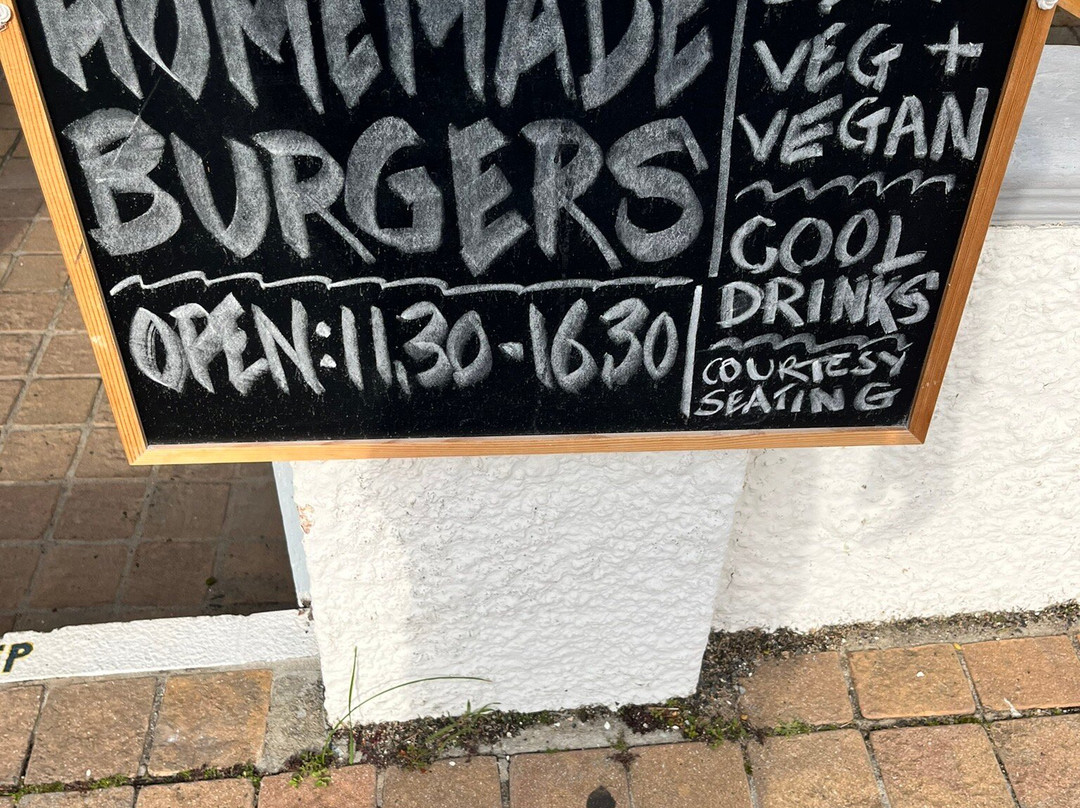 HOMEMADE
BURGERS
OPEN: 11,30 - 16,30
VEG +
VEGAN
COOL
DRINKS
COURTESY
SEATING
EP